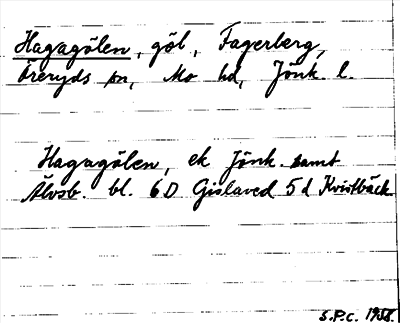 Hagagölen, göl, Fagerberg,
Öreryds sn, Mo hd, Jönk. l.
Hagagölen, ek Jönk. samt
Älvsb. bl. 6D Gislaved 5d Kvistbäck
S.P.C. 1955.